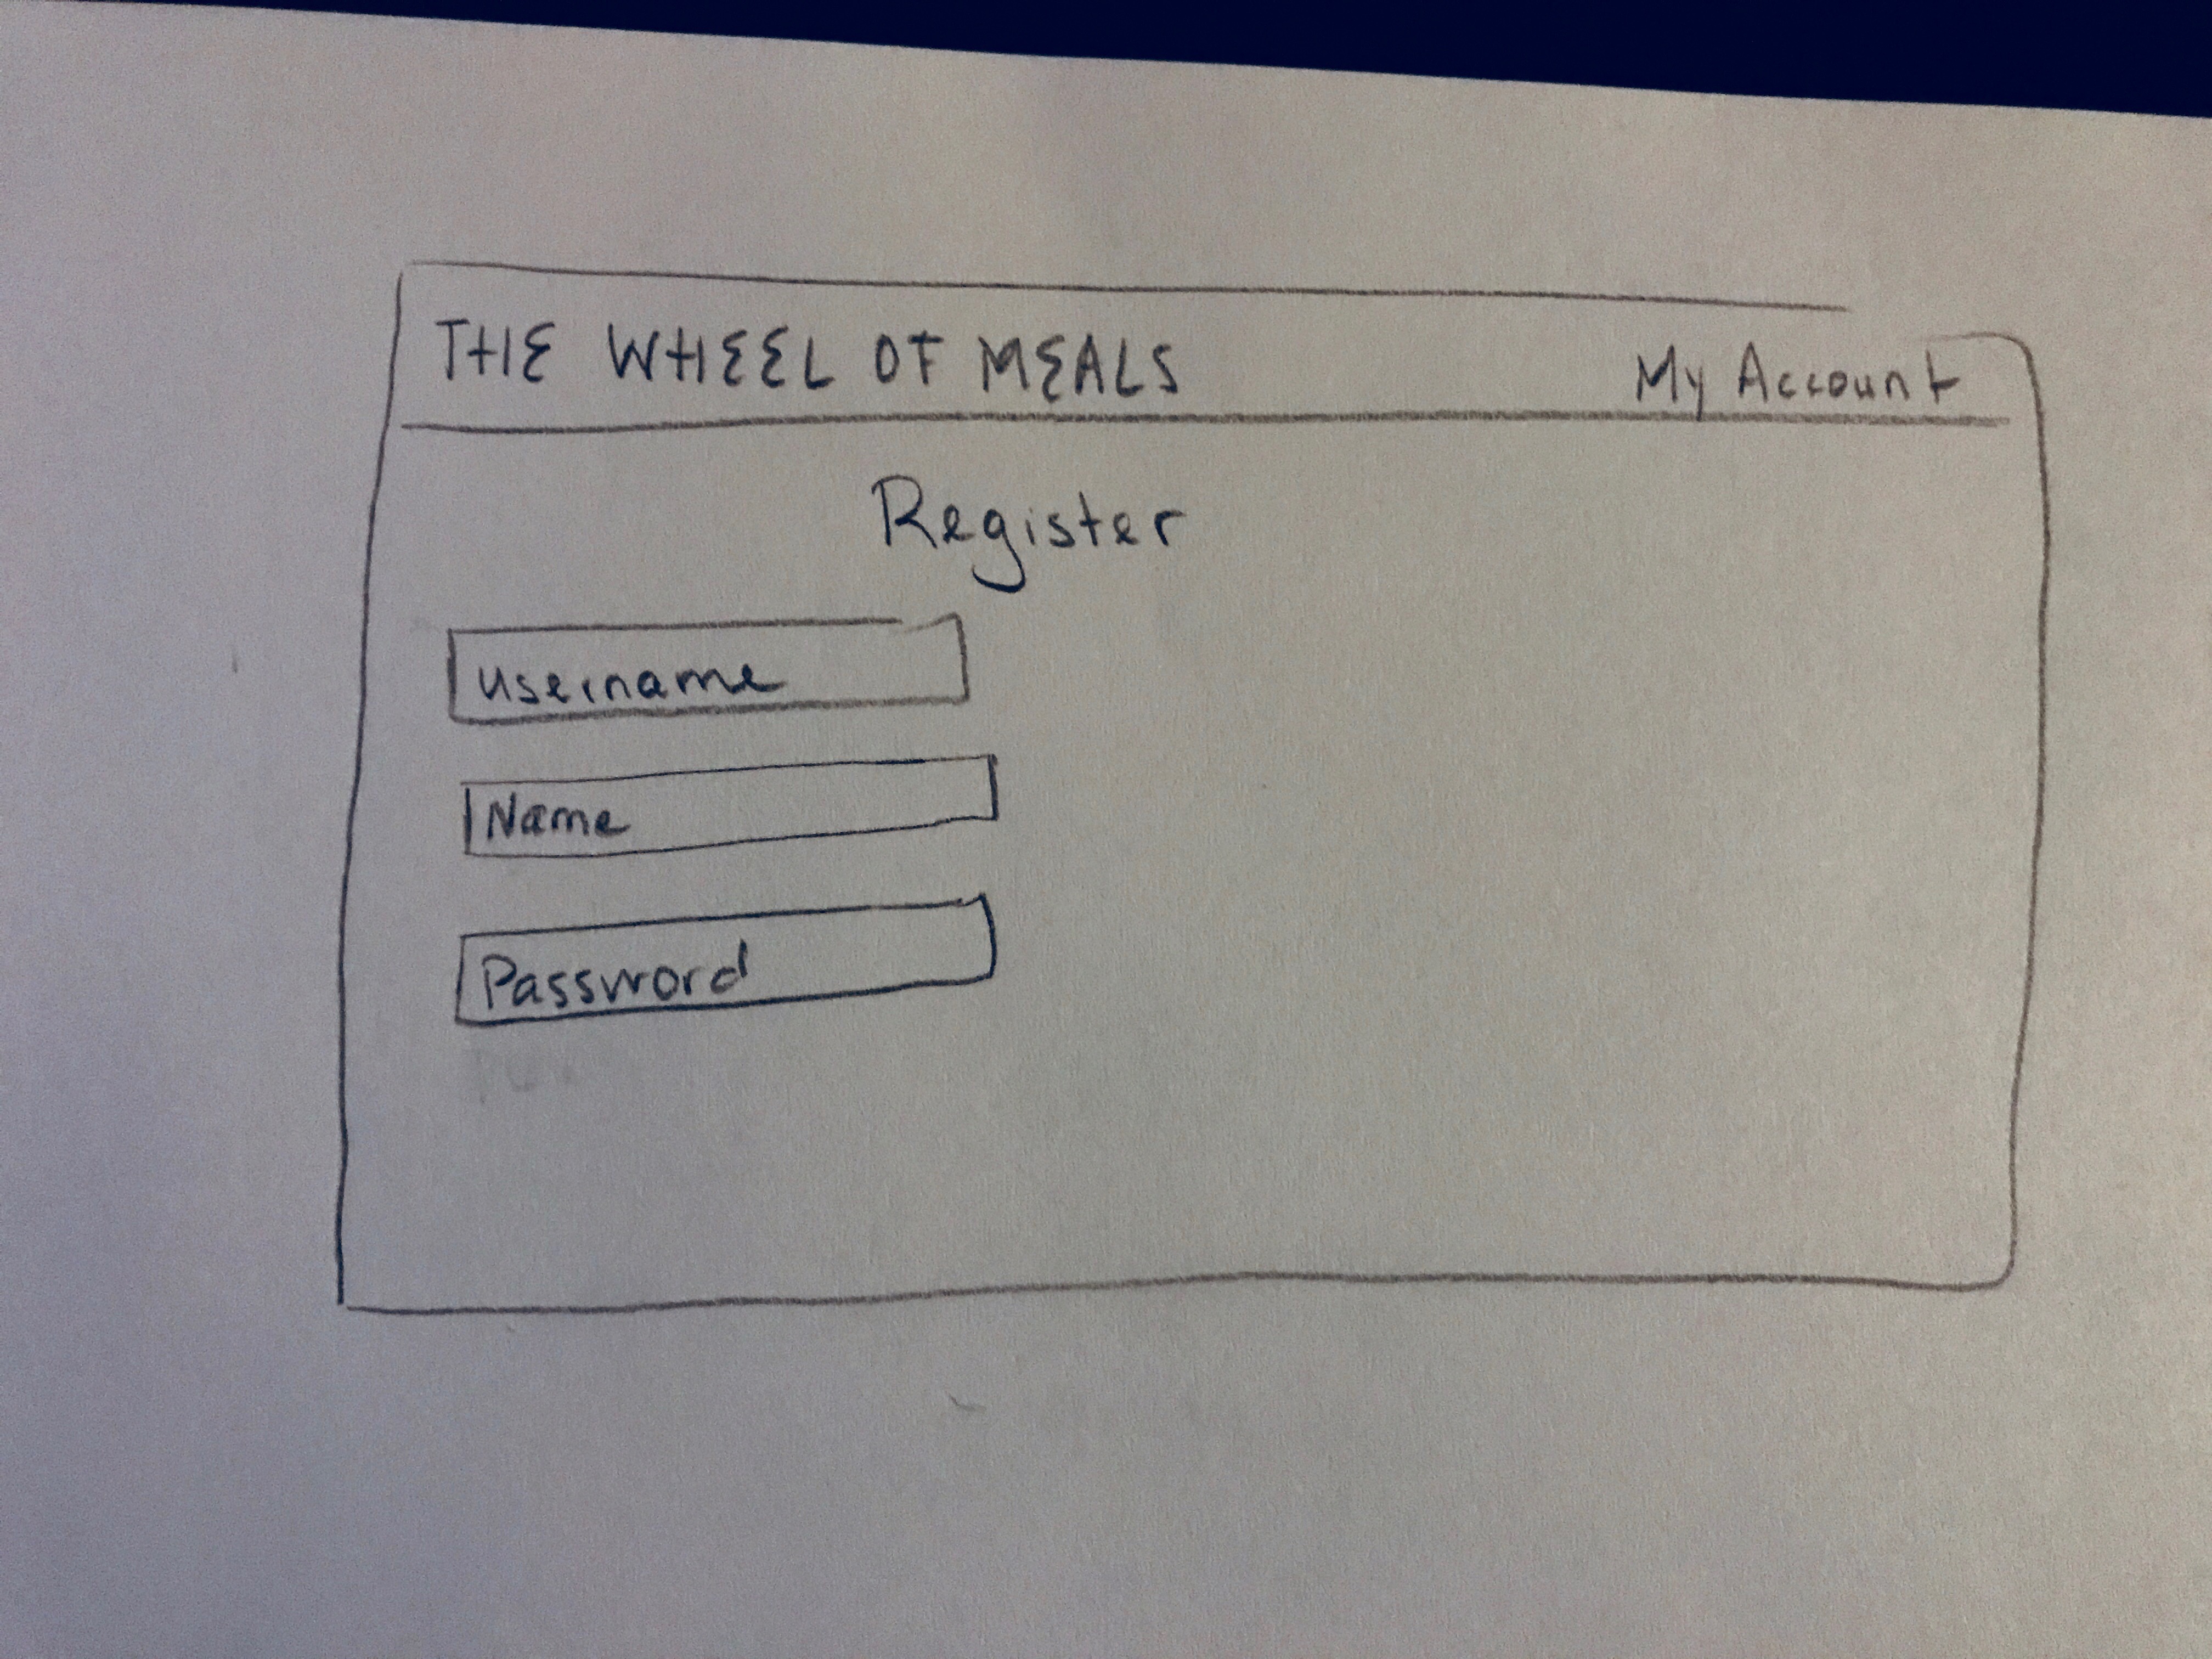 THE WHEEL OF MEALS My Account
Register
username
Name
Password